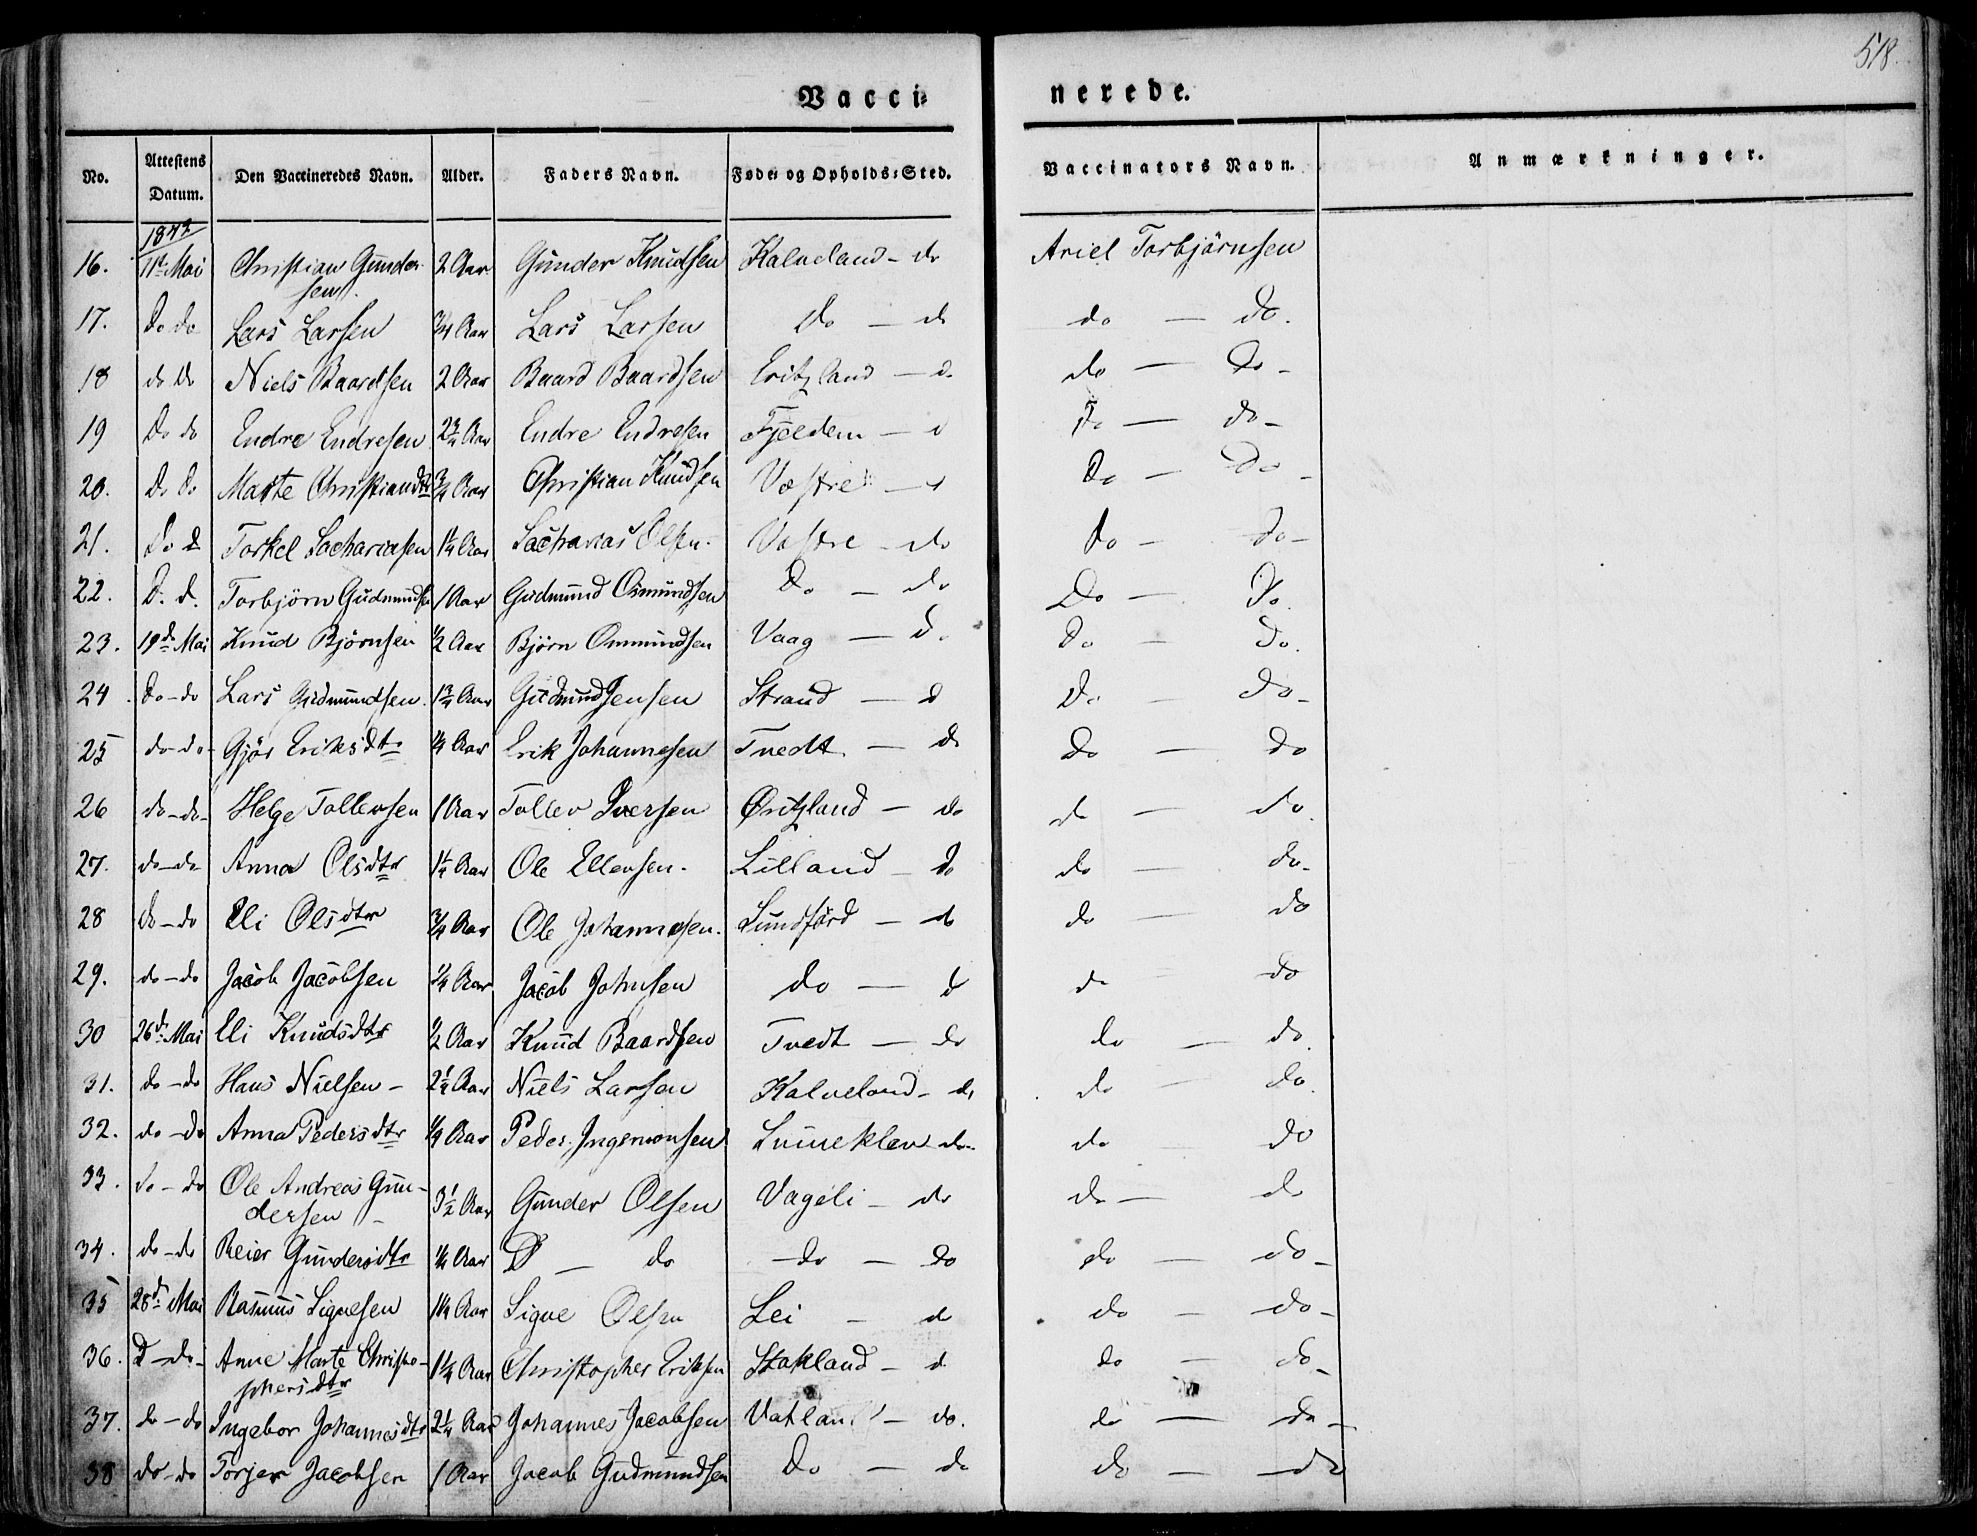 518.
Vacci= nerede.
No. Attestens Datum. Den Vaccineredes Navn. Alder. Faders Navn. Føde= og Opholds=Sted. Vaccinators Navn. Anmærkninger.
1842
16. 11te Mai Christian Gunder- 2 Aar Gunder Knudsen Kalveland - do Ariel Torbjörnsen
sen.
17. Do do Lars Larsen 3/4 Aar Lars Larsen do - do do - do.
18 do do Niels Baardsen 2 Aar Baard Baardsen Eritzland - do do - do -
19 Do do Endre Endresen 2 3/4 Aar Endre Endresen Fjeldem - d Do - do -
20. Do do Marte Christiandtr 3/4 Aar Christian Knudsen Vestre - d Do - Do -
21. Do d Torkel Sachariasen 1 1/4 Aar Sacharias Olsen. Vestre - do Do - Do -
22. D. d. Torbjörn Gudmundsen 1 Aar Gudmund Osmundsen Do - do Do - Do.
23. 19de Mai Knud Björnsen 1/2 Aar Björn Ommundsen Vaag - d. Do - Do.
24. Do - do Lars Gudmundsen. 1 3/4 Aar Gudmund Jensen Strand - d D. - do -
25 do - do - Gjör Eriksdtr 1/4 Aar Erik Johannesen Tvedt - do Do - do
26 do - do - Helge Tollevsen 1 Aar Tollev Iversen Øritzland - do do - do.
27. do - do Anna Olsdtr 1 1/4 Aar Ole Ellevsen. Lilland - do do - do -
28 do - do Eli Olsdtr 3/4 Aar Ole Johannesen. Sundförd - do do - do
29. do - do Jacob Jacobsen 1/4 Aar Jacob Johnsen do - d do do
30 26de Mai Eli Knudsdtr 1/2 Aar Knud Baardsen Tvedt - do do - do.
31. do - do Hans Nielsen - 2 1/4 Aar Niels Larsen Kalveland - do do - do.
32. do - do Anna Pedersdtr 1/4 Aar Peder Ingemonsen do do do
33. do - do Ole Andreas Gun- 3 1/2 Aar Gunder Olsen Vageli - do do - do
dersen -
34. do - do Reier Gundersdtr 1/4 Aar D - do do - do do - do -
35 28de Mai Rasmus Sigvesen 1 1/4 Aar Sigve Olsen Lei - do do - do -
36. D - do - Anne Marte Christo- 1 1/4 Aar Christopher Eriksen Stokland - d do - do -
phersdtr
37. do - do Ingebor Johannesdtr 2 1/4 Aar Johannes Jacobsen Vatland - do. do - do -
38 do - do Torjer Jacobsen 1 Aar Jacob Gudmundsen Do - do do - do